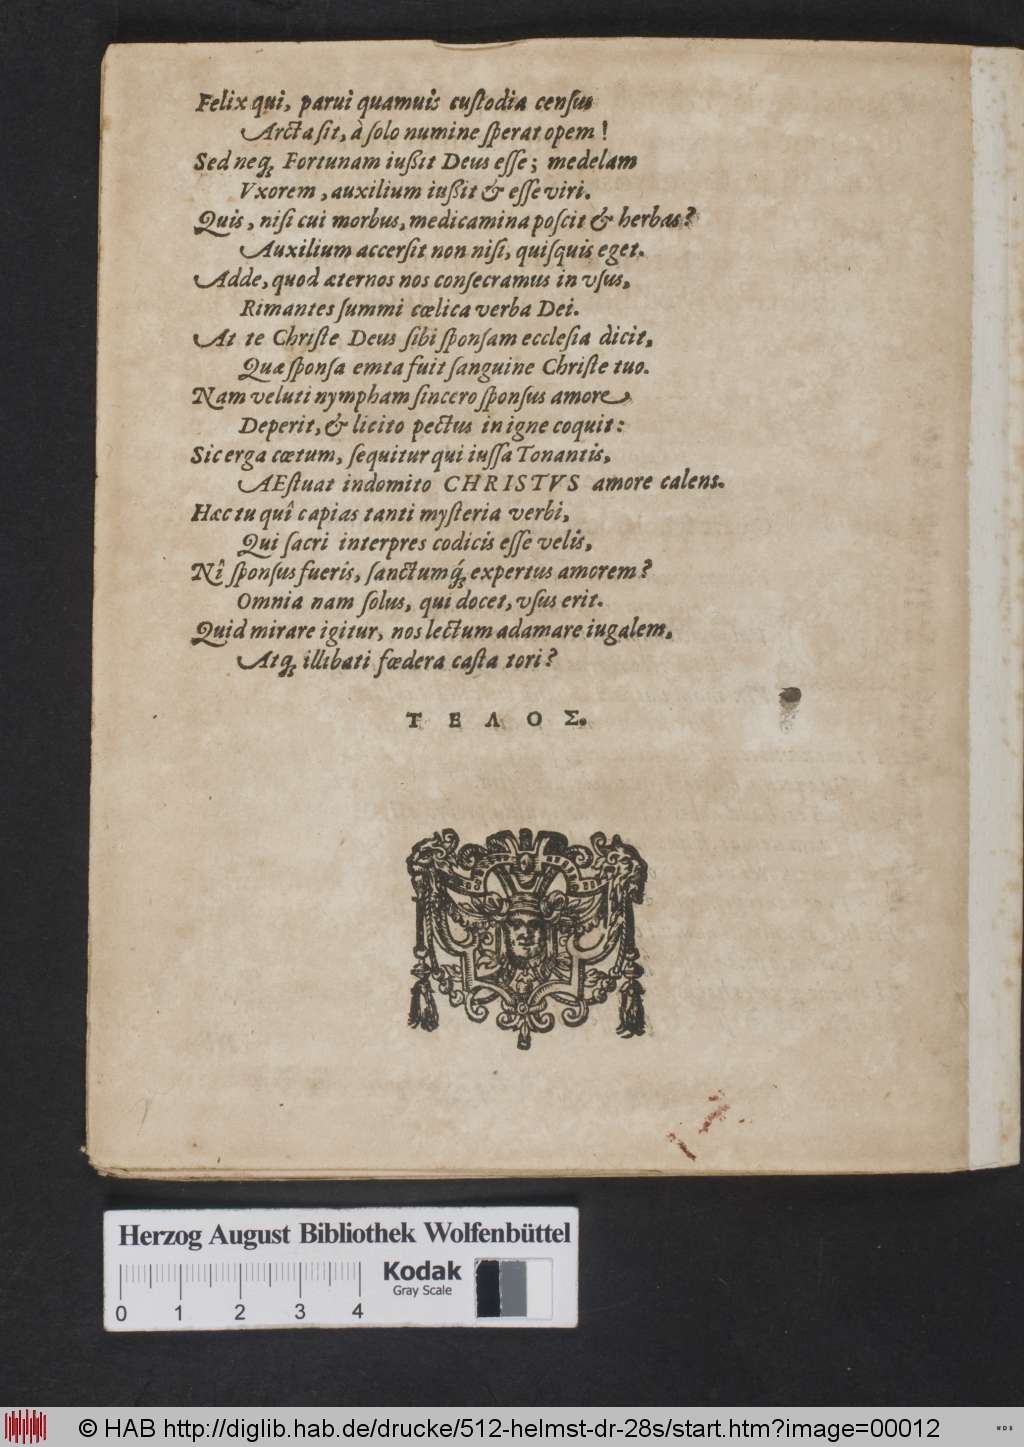 Felix qui, parui quamuis cuſtodia cenſus
Arcta ſit, à ſolo numine ſperat opem!
Sed neq; Fortunam iußit Deus eſſe; medelam
Vxorem, auxilium iußit & eſſe viri.
Quis, niſi cui morbus, medicamina poſcit & herbas?
Auxilium accerſit non niſi, quiſquis eget.
Adde, quod æternos nos conſecramus in vſus,
Rimantes ſummi cœlica verba Dei.
At te Chriſte Deus ſibi ſponſam eccleſia dicit,
Quæ ſponſa emta fuit ſanguine Chriſte tuo.
Nam veluti nympham ſincero ſponſus amore
Deperit, & licito pectus in igne coquit:
Sic erga cœtum, ſequitur qui iuſſa Tonantis,
AEſtuat indomito CHRISTVS amore calens.
Hæc tu quî capias tanti myſteria verbi,
Qui ſacri interpres codicis eſſe velis,
Nî ſponſus fueris, ſanctumq́; expertus amorem?
Omnia nam ſolus, qui docet, vſus erit.
Quid mirare igitur, nos lectum adamare iugalem,
Atq; illibati fœdera caſta tori?
ΤΕΛΟΣ.
Herzog August Bibliothek Wolfenbüttel
Kodak
Gray Scale
0 1 2 3 4
© HAB http://diglib.hab.de/drucke/512-helmst-dr-28s/start.htm?image=00012